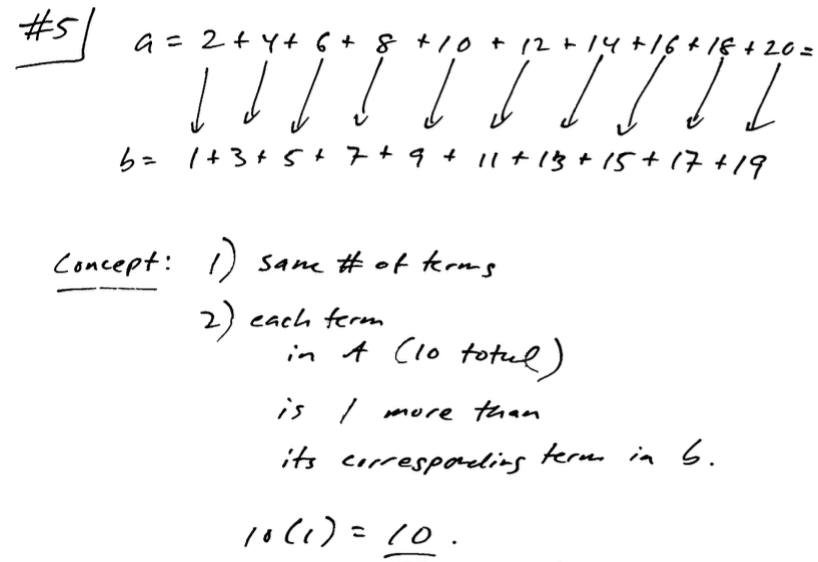 #5
a = 2 + 4 + 6 + 8 + 10 + 12 + 14 + 16 + 18 + 20 =
b = 1 + 3 + 5 + 7 + 9 + 11 + 13 + 15 + 17 + 19
Concept: 1) same # of terms
2) each term
in A (10 total)
is 1 more than
its corresponding term in b.
10(1) = 10.